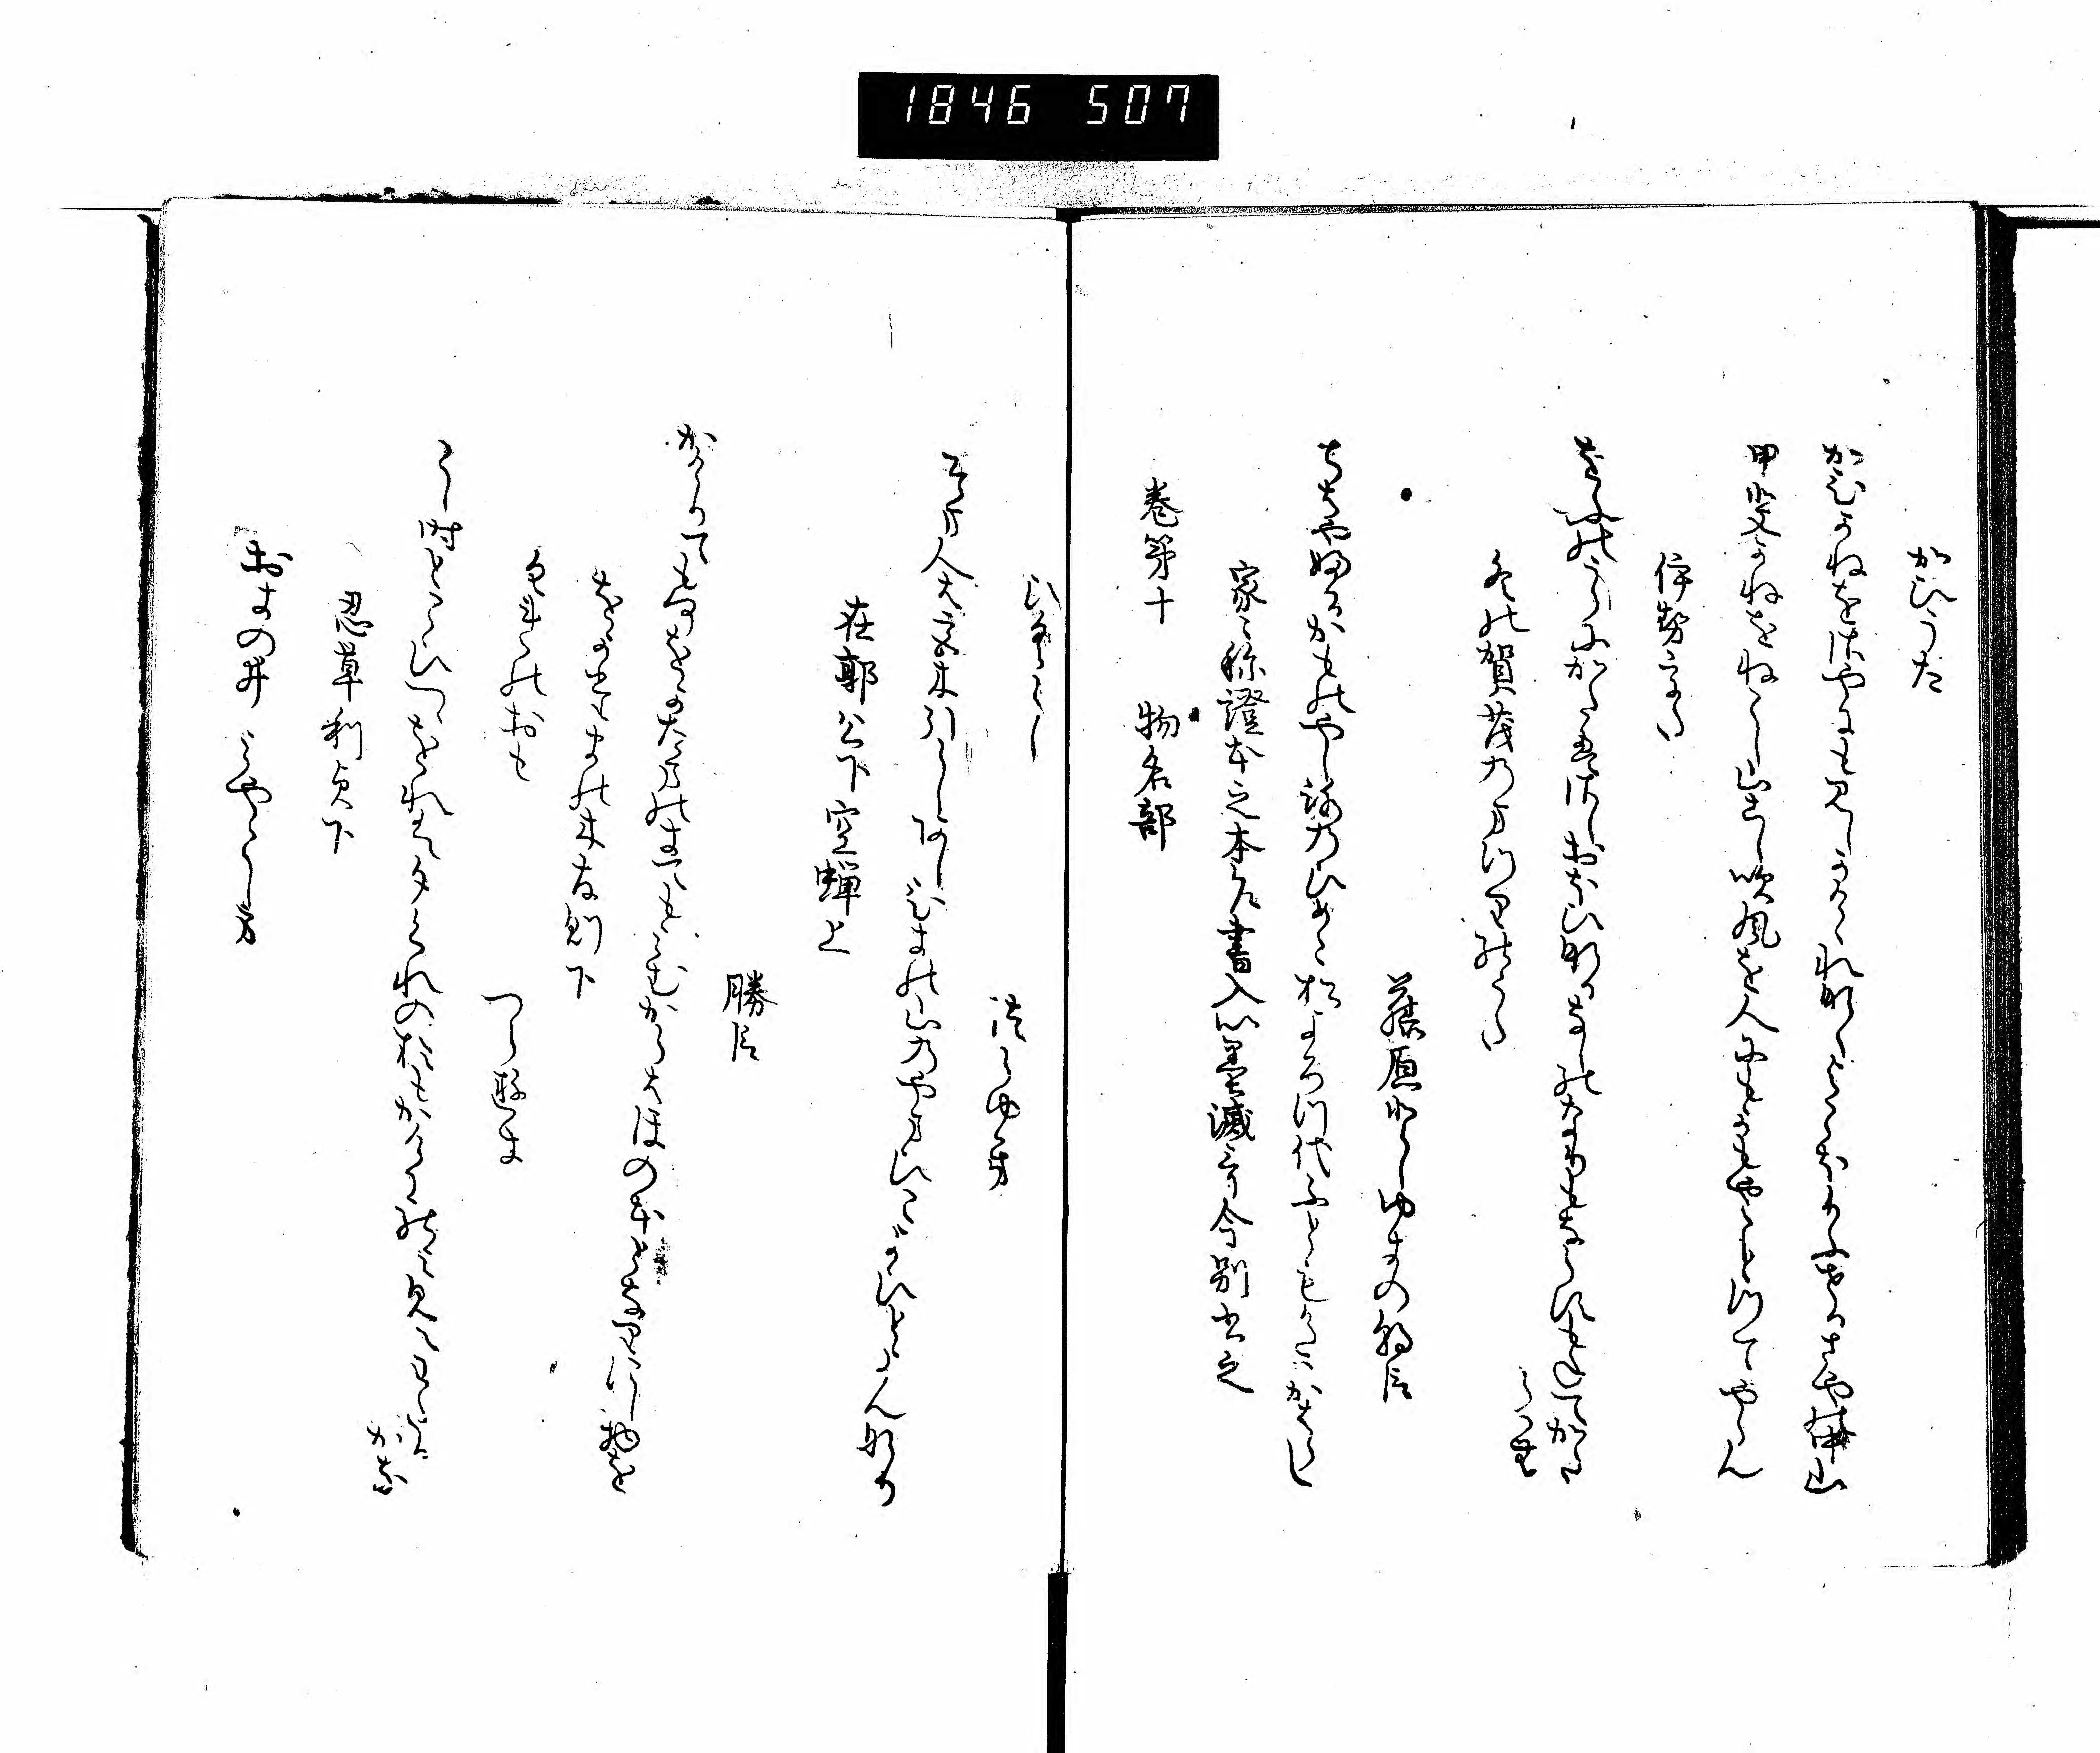 かひうた
かひかねをさやにも見しかけゝれなくよこほりふせるさや中山
甲斐かねをねこし山こし吹風を人にもかもやことつてやらん
伊勢うた
をふのうらにかたえさしおほひなるなしのなりもならすもねてかた
らはむ
冬の賀茂のまつりのうた
藤原としゆきの朝臣
ちはやふるかものやしろのひめこ松よろつ代ふともいろはかはらし
家々称證本之本乍書入以墨滅哥今別書之
巻第十　物名部
ひくらし
つらゆき
そま人は宮木引らしあしひきの山のやまひこよひとよむなり
在郭公下空蝉上
勝臣
かけりてもなにをかたまのきてもみむからはほのほとなりにし物を
をかたまの木友則下
くれのおも
つらゆき
こし時とこひつゝをれは夕くれのおもかけにのみ見えわたる
かな
忍草利貞下
おきの井　みやこしま